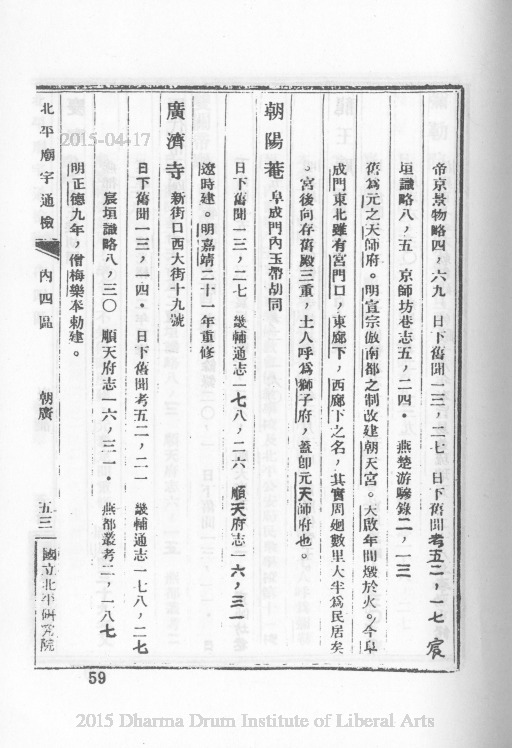 帝京景物略四，六九　日下舊聞一三，二七　日下舊聞考五二，一七　宸
垣識略八，五〇　京師坊巷志五，二四·　燕楚游驂錄二，一三
舊爲元之天師府。明宣宗倣南都之制改建朝天宮。天啟年間燬於火。今阜
成門東北雖有宮門口，東廊下，西廊下之名，其實周廻數里大半爲民居矣
。宮後向存舊殿三重，土人呼爲獅子府，蓋卽元天師府也。
朝陽菴　阜成門內玉帶胡同
日下舊聞一三，二七　畿輔通志一七八，二六　順天府志一六，三一
遼時建。明嘉靖二十一年重修
廣濟寺　新街口西大街十九號
日下舊聞一三，一四·　日下舊聞考五二，二一　畿輔通志一七八，二七
宸垣識略八，三〇　順天府志一六，三一·　燕都叢考二，一八七
明正德九年，僧梅樂奉勅建。
北平廟宇通檢　內四區　朝廣　五三　國立北平研究院
59
2015-04-17
2015 Dharma Drum Institute of Liberal Arts